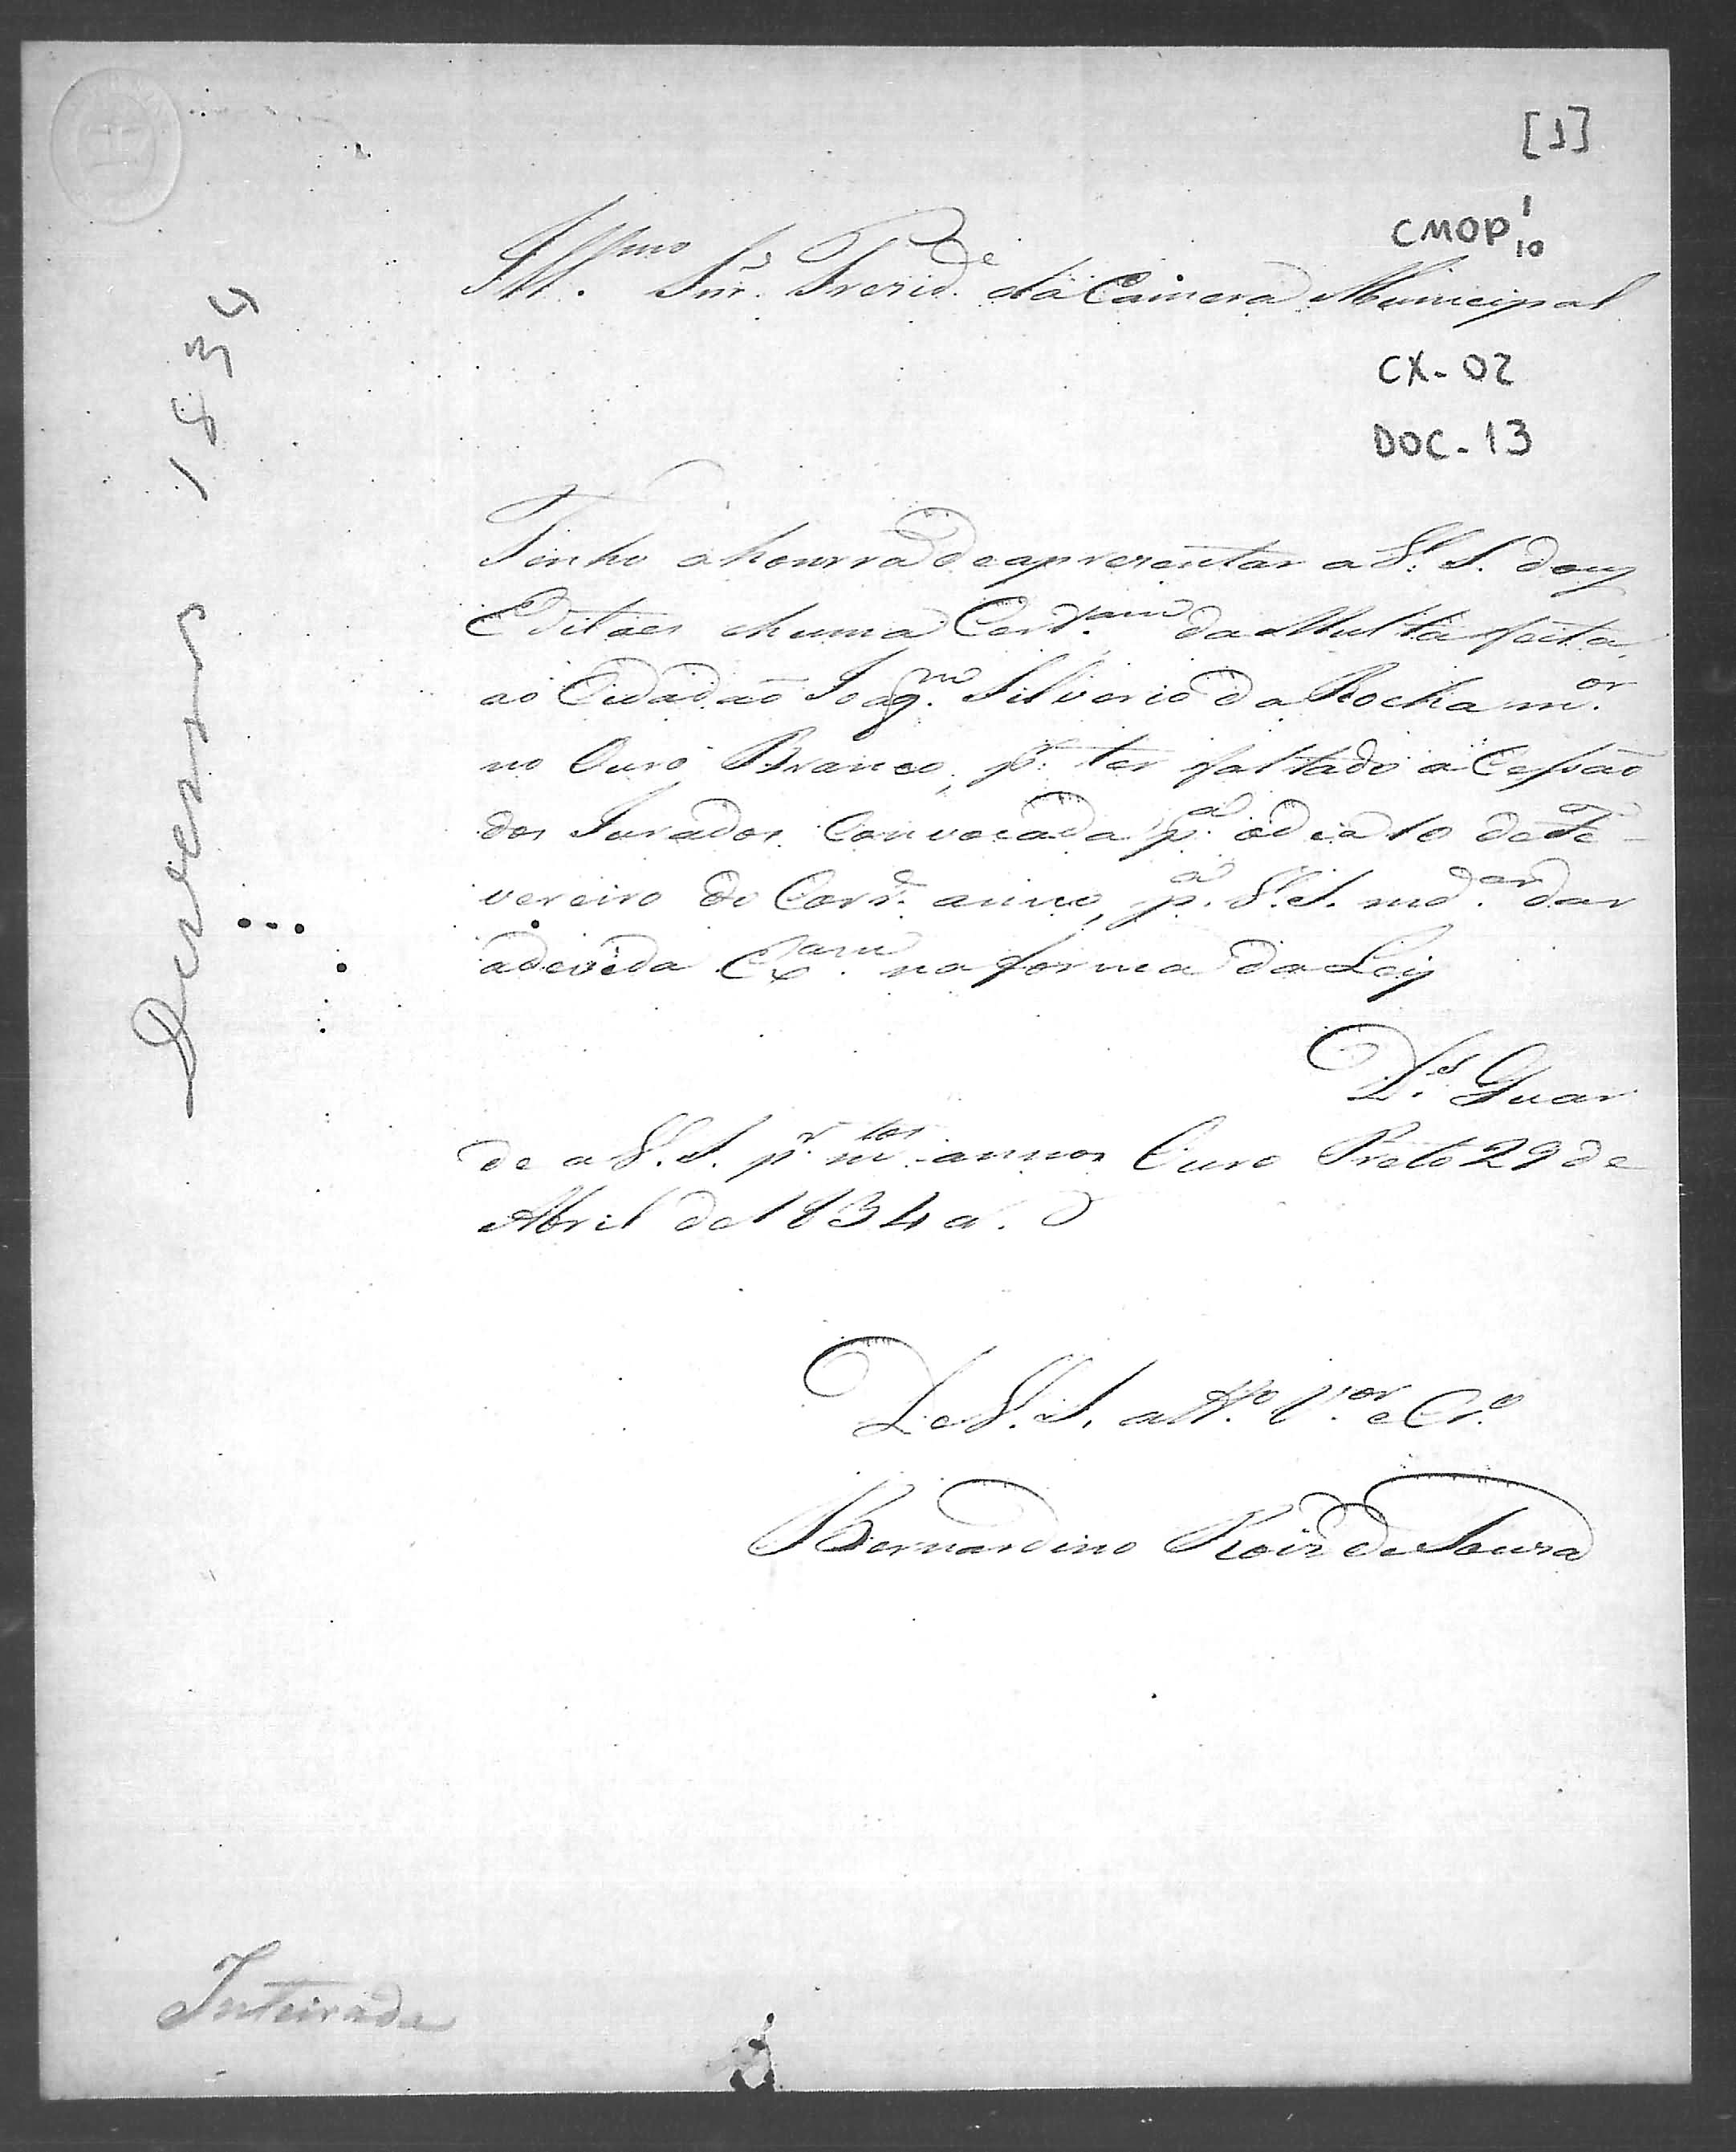 [1]
CMOP 1/10
Illmo. Snr. Prezide. da Camera Municipal
CX- 02
DOC- 13
1834
Diversos
Tenho a honrra de aprezentar a V. S. douz
Editaes e huma Certam. da Multa feita
ao Cidadão Joaqm. Silverio da Rocha mor.
no Ouro Branco, pr. ter faltado a Cessão
dos Jurados Convocada pa. o dia 10 de Fe-
vereiro do Corre. anno, pa. V. S. mdar. dar
a devida Exam. na forma da Ley
Ds. Guar
de a V. S. pr. mtos. annos Ouro Preto 29 de
Abril de 1834 a.
De V. S. atto. Vor. e Cro.
Bernardino Roiz de Souza
Inteirada